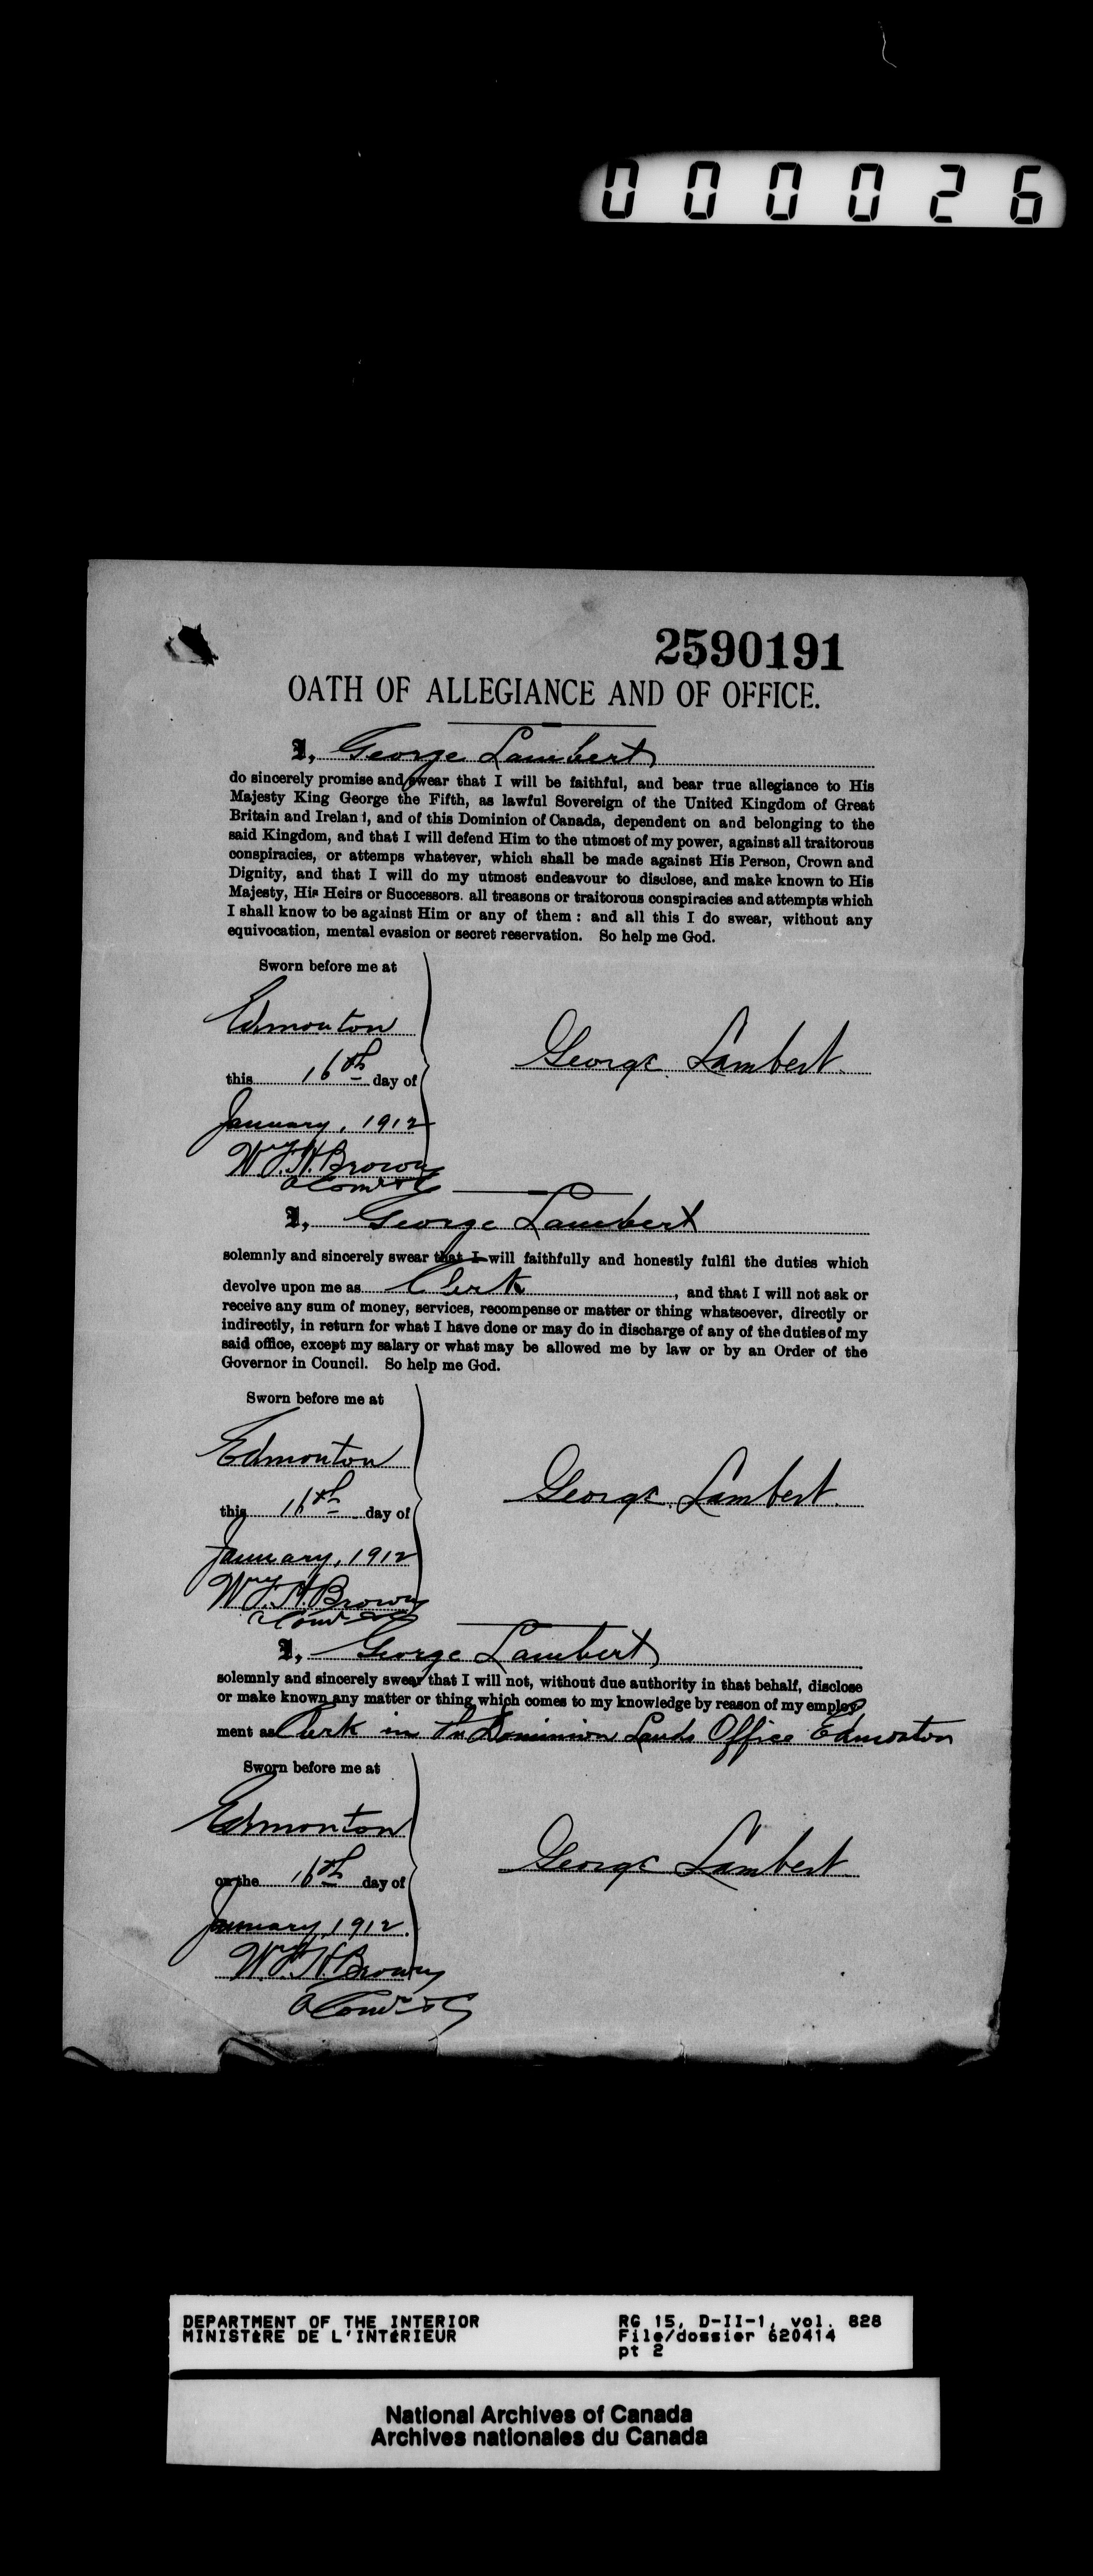 000026
2590191
OATH OF ALLEGIANCE AND OF OFFICE.
I, George Lambert
do sincerely promise and swear that I will be faithful, and bear true allegiance to His
Majesty King George the Fifth, as lawful Sovereign of the United Kingdom of Great
Britain and Ireland, and of this Dominion of Canada, dependent on and belonging to the
said Kingdom, and that I will defend Him to the utmost of my power, against all traitorous
conspiracies, or attemps whatever, which shall be made against His Person, Crown and
Dignity, and that I will do my utmost endeavour to disclose, and make known to His
Majesty, His Heirs or Successors. all treasons or traitorous conspiracies and attempts which
I shall know to be against Him or any of them : and all this I do swear, without any
equivocation, mental evasion or secret reservation. So help me God.
Sworn before me at
Edmonton
this 16th day of
January, 1912
George Lambert
W.F.H. Brown
I, George Lambert
solemnly and sincerely swear that I will faithfully and honestly fulfil the duties which
devolve upon me as Clerk, and that I will not ask or
receive any sum of money, services, recompense or matter or thing whatsoever, directly or
indirectly, in return for what I have done or may do in discharge of any of the duties of my
said office, except my salary or what may be allowed me by law or by an Order of the
Governor in Council. So help me God.
Sworn before me at
Edmonton
this 16th day of
January, 1912
George Lambert
W.F.H. Brown
I, George Lambert
solemnly and sincerely swear that I will not, without due authority in that behalf, disclose
or make known any matter or thing which comes to my knowledge by reason of my employ-
ment as Clerk in the Dominion Lands Office Edmonton
Sworn before me at
Edmonton
on the 16th day of
January, 1912.
George Lambert
W.F.H. Brown
DEPARTMENT OF THE INTERIOR
MINISTÈRE DE L'INTÉRIEUR
RG 15, D-II-1, vol. 828
File/dossier 620414
pt 2
National Archives of Canada
Archives nationales du Canada